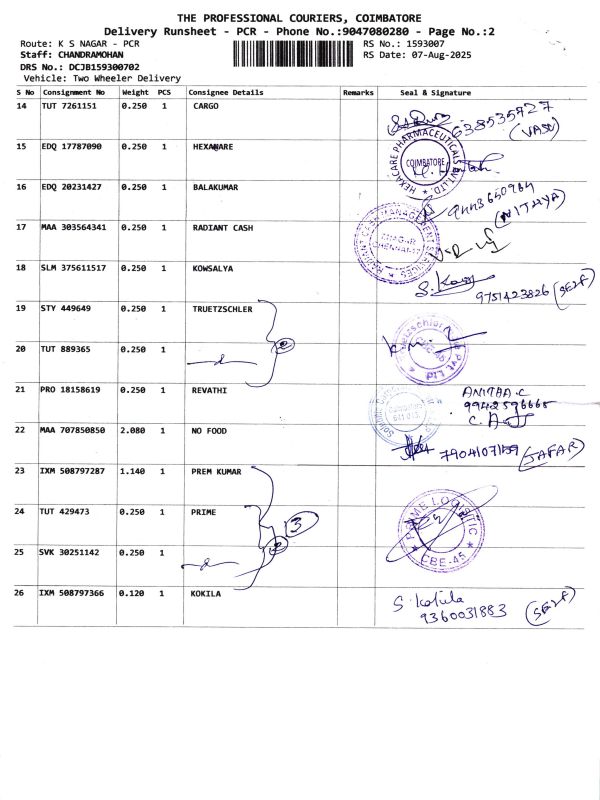 THE PROFESSIONAL COURIERS, COIMBATORE
Delivery Runsheet - PCR - Phone No.:9047080280 - Page No.:2
Route: K S NAGAR - PCR RS No.: 1593007
Staff: CHANDRAMOHAN RS Date: 07-Aug-2025
DRS No.: DCJB159300702
Vehicle: Two Wheeler Delivery
S No Consignment No Weight PCS Consignee Details Remarks Seal & Signature
14 TUT 7261151 0.250 1 CARGO
638535727
(VASU)
15 EDQ 17787090 0.250 1 HEXAWARE
HEXACARE PHARMACEUTICALS PVT LTD.
COIMBATORE
16 EDQ 20231427 0.250 1 BALAKUMAR
9443660964
(NITHYA)
17 MAA 303564341 0.250 1 RADIANT CASH
RADIANT CASH MANAGEMENT SERVICES
18 SLM 375611517 0.250 1 KOWSALYA
9751423826 (SELF)
19 STY 449649 0.250 1 TRUETZSCHLER
2
20 TUT 889365 0.250 1
21 PRO 18158619 0.250 1 REVATHI
ANITHA.C
9942596665
22 MAA 707850850 2.080 1 NO FOOD
(JAFAR)
23 IXM 508797287 1.140 1 PREM KUMAR
24 TUT 429473 0.250 1 PRIME
3
2
PRIME LOGISTIC
CBE-45
25 SVK 30251142 0.250 1
26 IXM 508797366 0.120 1 KOKILA
S. Kokila
9360031883 (SELF)